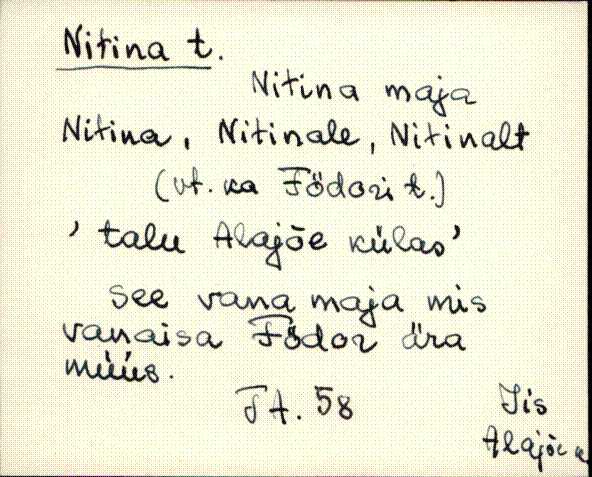 Nitina t.
Nitina maja
Nitina, Nitinale, Nitinalt
(vt. ka Födori t.)
' talu Alajõe külas'
See vana maja mis
vanaisa Födor ära
müüs.
TA. 58
Iis
Alajõe k